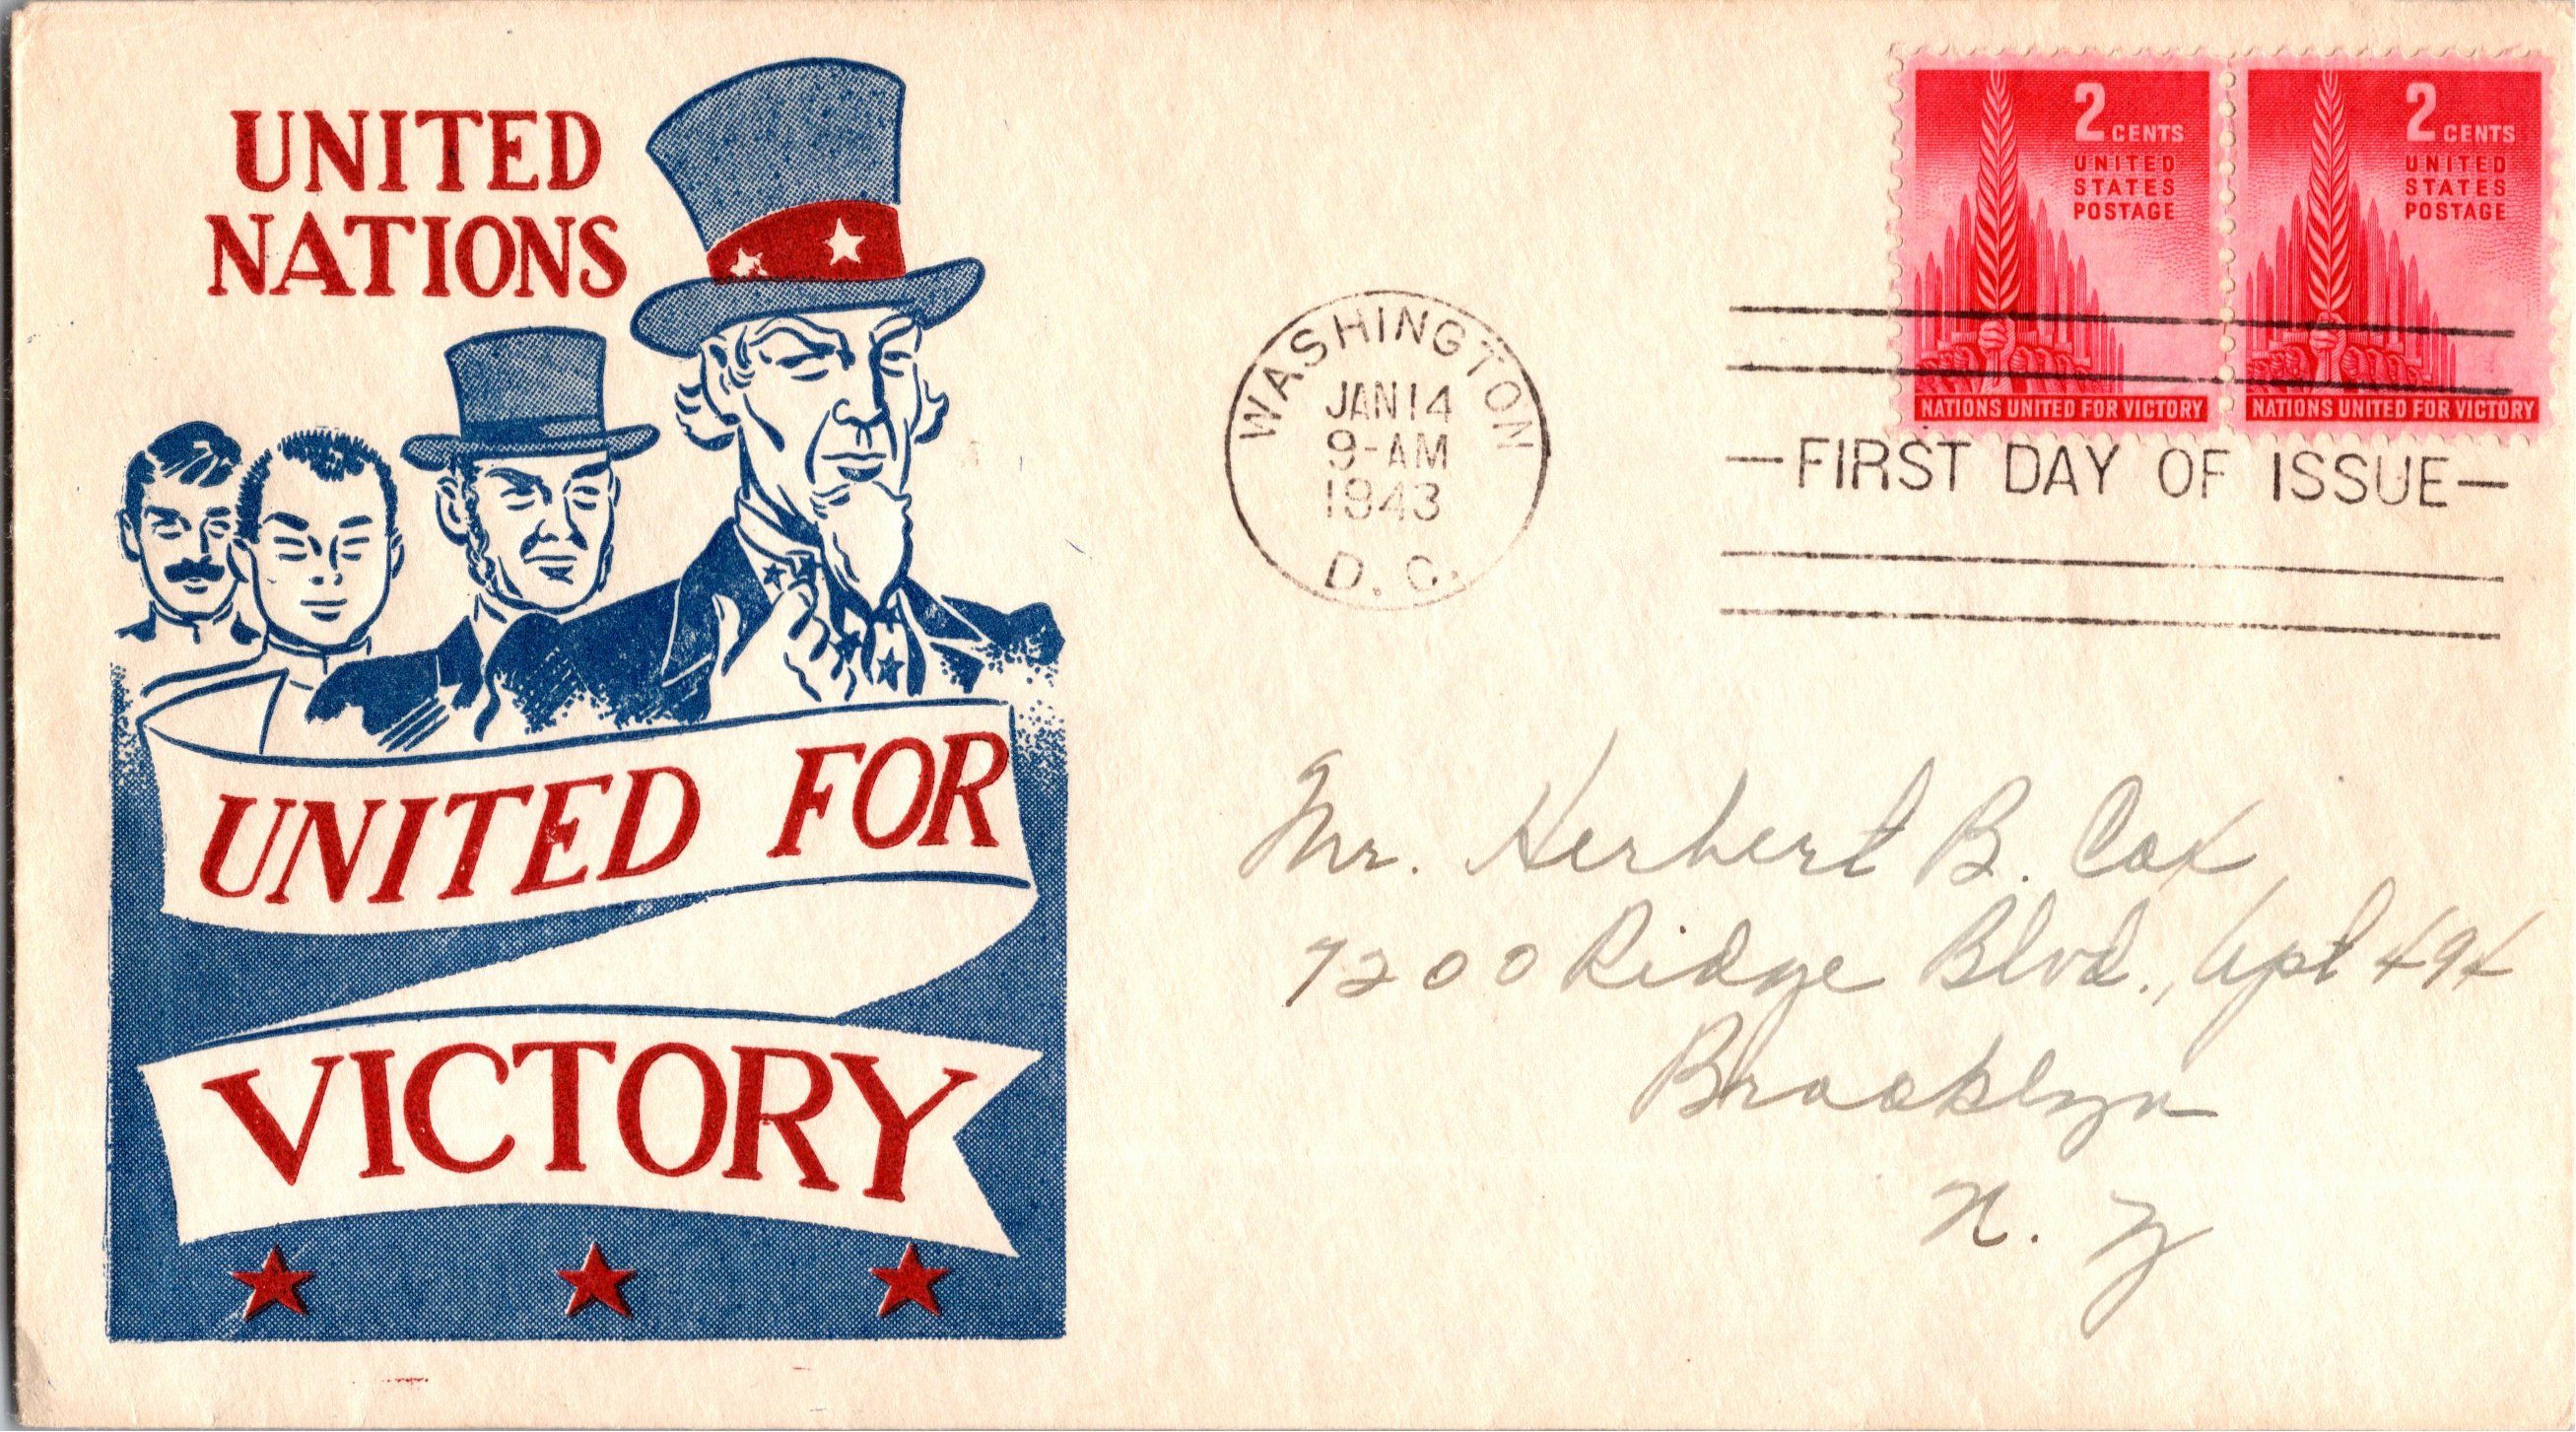 UNITED
NATIONS
UNITED FOR
VICTORY
WASHINGTON
JAN 14
9-AM
1943
D. C.
2 CENTS
UNITED
STATES
POSTAGE
NATIONS UNITED FOR VICTORY
2 CENTS
UNITED
STATES
POSTAGE
NATIONS UNITED FOR VICTORY
—FIRST DAY OF ISSUE—
Mr. Herbert B. Cox
7200 Ridge Blvd., Apt
Brooklyn
N. Y